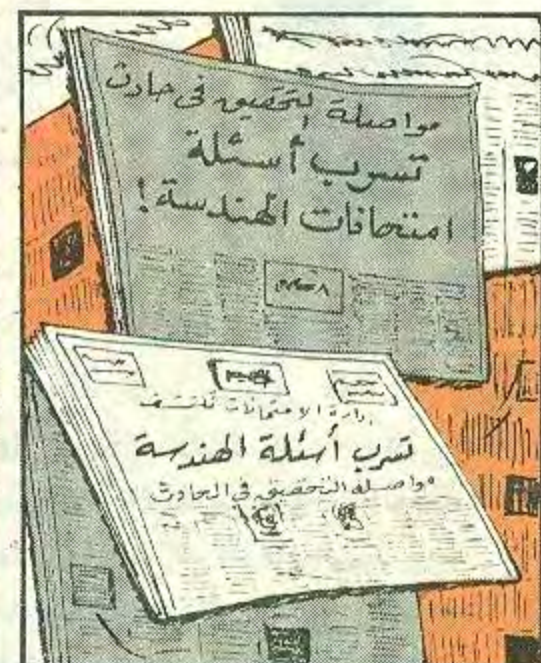 مواصلة التحقيق فى حادث
تسرب أسئلة
امتحانات الهندسة !
إدارة الامتحانات تكتشف
تسرب أسئلة الهندسة
مواصلة التحقيق فى الحادث